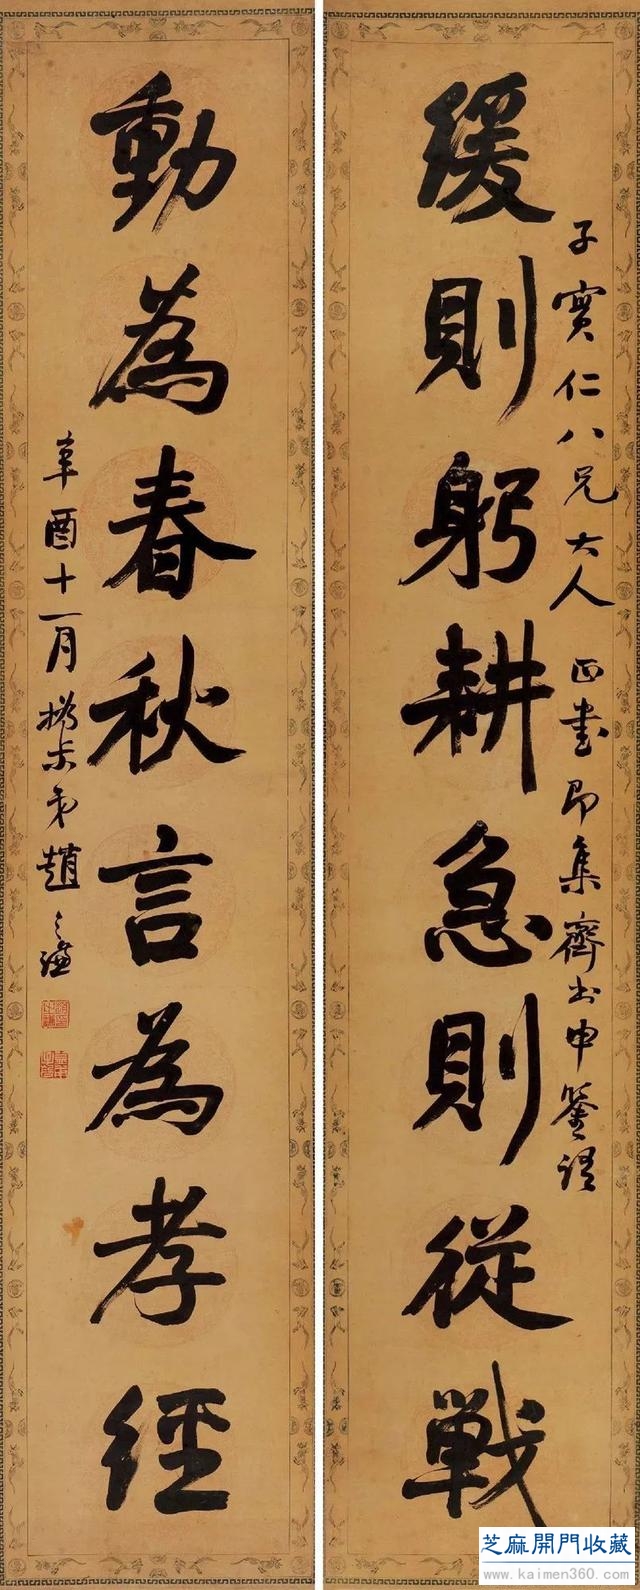 緩則躬耕急則從戰
子寳仁八兄大人 正書即集齊書申鑒語
動為春秋言為孝經
辛酉十一月撝未弟趙之謙
芝麻開門收藏
www.kaimen360.com